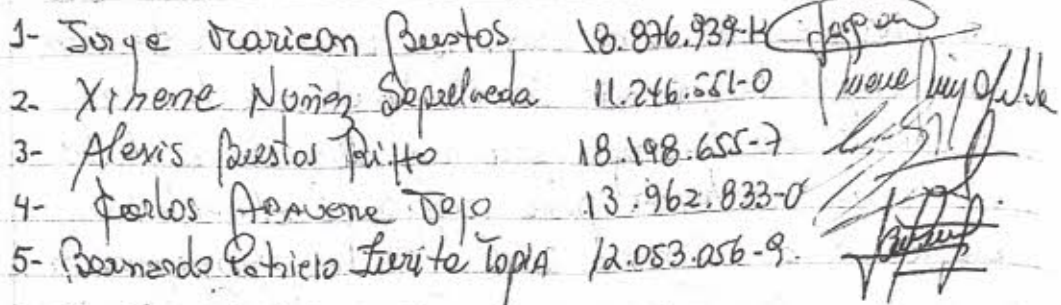 1- Jorge Marican Bustos 18.876.939-K
2- Ximena Nuñez Sepulveda 11.246.551-0
3- Alexis Bustos Riffo 18.198.655-7
4- Carlos Aravena Tejo 13.962.833-0
5- Bernardo Patricio Zurita Tapia 12.053.056-9.